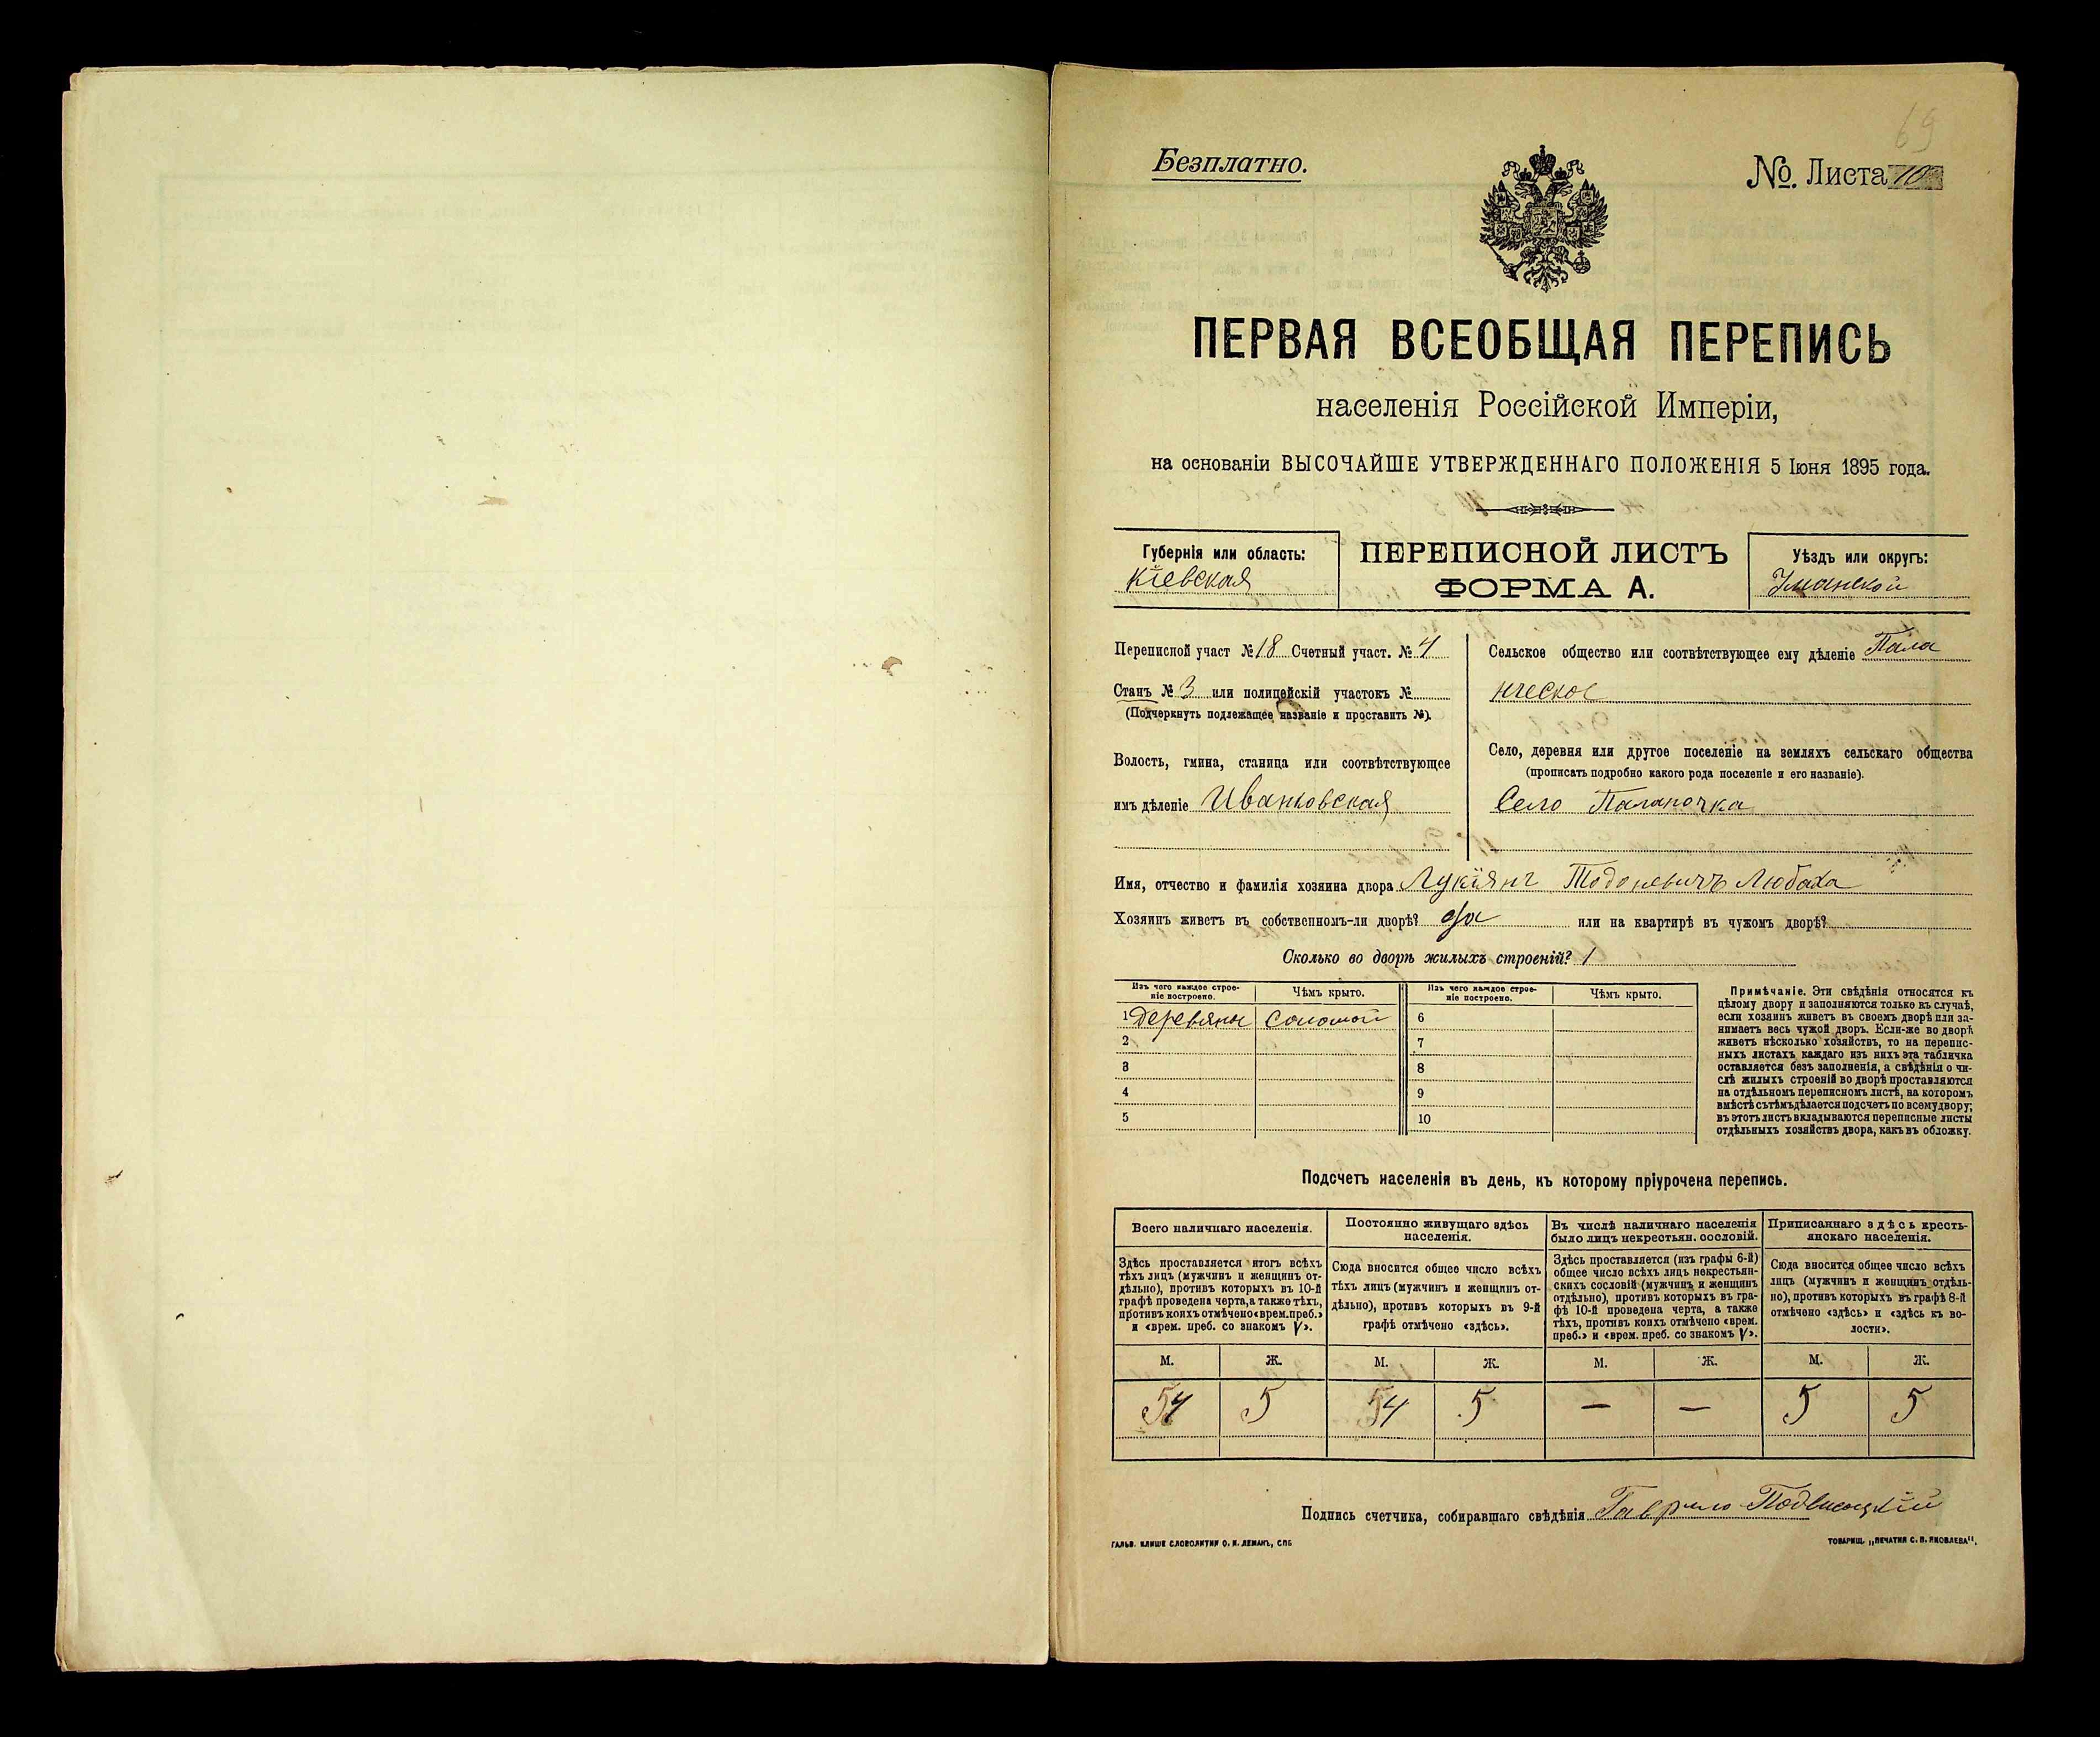 69
Безплатно.
№. Листа 10
ПЕРВАЯ ВСЕОБЩАЯ ПЕРЕПИСЬ
населенія Россійской Имперіи,
на основаніи ВЫСОЧАЙШЕ УТВЕРЖДЕННАГО ПОЛОЖЕНІЯ 5 Іюня 1895 года.
Губернія или область:
Кіевская
ПЕРЕПИСНОЙ ЛИСТЪ
ФОРМА А.
Уѣздъ или округъ:
Уманской
Переписной участ № 18 Счетный участ. № 4
Станъ № 3 или полицейскій участокъ №
(Подчеркнуть подлежащее названіе и проставить №).
Волость, гмина, станица или соотвѣтствующее
имъ дѣленіе Ивановская
Сельское общество или соотвѣтствующее ему дѣленіе Пала
нческое
Село, деревня или другое поселеніе на земляхъ сельскаго общества
(прописать подробно какого рода поселеніе и его названіе).
Село Паланочка
Имя, отчество и фамилія хозяина двора Лукіянъ Тодоневичъ Любаха
Хозяинъ живетъ въ собственномъ-ли дворѣ? да или на квартирѣ въ чужомъ дворѣ?
Сколько во дворѣ жилыхъ строеній? 1
Изъ чего каждое строе-
ніе построено.
Чѣмъ крыто.
Изъ чего каждое строе-
ніе построено.
Чѣмъ крыто.
1 Деревяны Соломой 6
2 7
3 8
4 9
5 10
Примѣчаніе. Эти свѣдѣнія относятся къ
цѣлому двору и заполняются только въ случаѣ,
если хозяинъ живетъ въ своемъ дворѣ или за-
нимаетъ весь чужой дворъ. Если-же во дворѣ
живетъ нѣсколько хозяйствъ, то на перепис-
ныхъ листахъ каждаго изъ нихъ эта табличка
оставляется безъ заполненія, а свѣдѣнія о чи-
слѣ жилыхъ строеній во дворѣ проставляются
на отдѣльномъ переписномъ листѣ, на которомъ
вмѣстѣ съ тѣмъ дѣлается подсчетъ по всему двору;
въ этотъ листъ вкладываются переписные листы
отдѣльныхъ хозяйствъ двора, какъ въ обложку.
Подсчетъ населенія въ день, къ которому пріурочена перепись.
Всего наличнаго населенія.
Здѣсь проставляется итогъ всѣхъ
тѣхъ лицъ (мужчинъ и женщинъ от-
дѣльно), противъ которыхъ въ 10-й
графѣ проведена черта, а также тѣхъ,
противъ коихъ отмѣчено «врем. преб.»
и «врем. преб. со знакомъ V».
Постоянно живущаго здѣсь
населенія.
Сюда вносится общее число всѣхъ
тѣхъ лицъ (мужчинъ и женщинъ от-
дѣльно), противъ которыхъ въ 9-й
графѣ отмѣчено «здѣсь».
Въ числѣ наличнаго населенія
было лицъ некрестьян. сословій.
Здѣсь проставляется (изъ графы 6-й)
общее число всѣхъ лицъ некрестьян-
скихъ сословій (мужчинъ и женщинъ
отдѣльно), противъ которыхъ въ гра-
фѣ 10-й проведена черта, а также
тѣхъ, противъ коихъ отмѣчено «врем.
преб.» и «врем. преб. со знакомъ V».
Приписаннаго здѣсь кресть-
янскаго населенія.
Сюда вносится общее число всѣхъ
лицъ (мужчинъ и женщинъ отдѣль-
но), противъ которыхъ въ графѣ 8-й
отмѣчено «здѣсь» и «здѣсь въ во-
лости».
М. Ж. М. Ж. М. Ж. М. Ж.
54 5 54 5 — — 5 5
Подпись счетчика, собиравшаго свѣдѣнія Гаврило Подвисоцкій
ГАЛЬВ. КЛИШЕ СЛОВОЛИТНИ О. И. ЛЕМАНЪ, СПБ
ТОВАРИЩ. „ПЕЧАТНЯ С. П. ЯКОВЛЕВА".